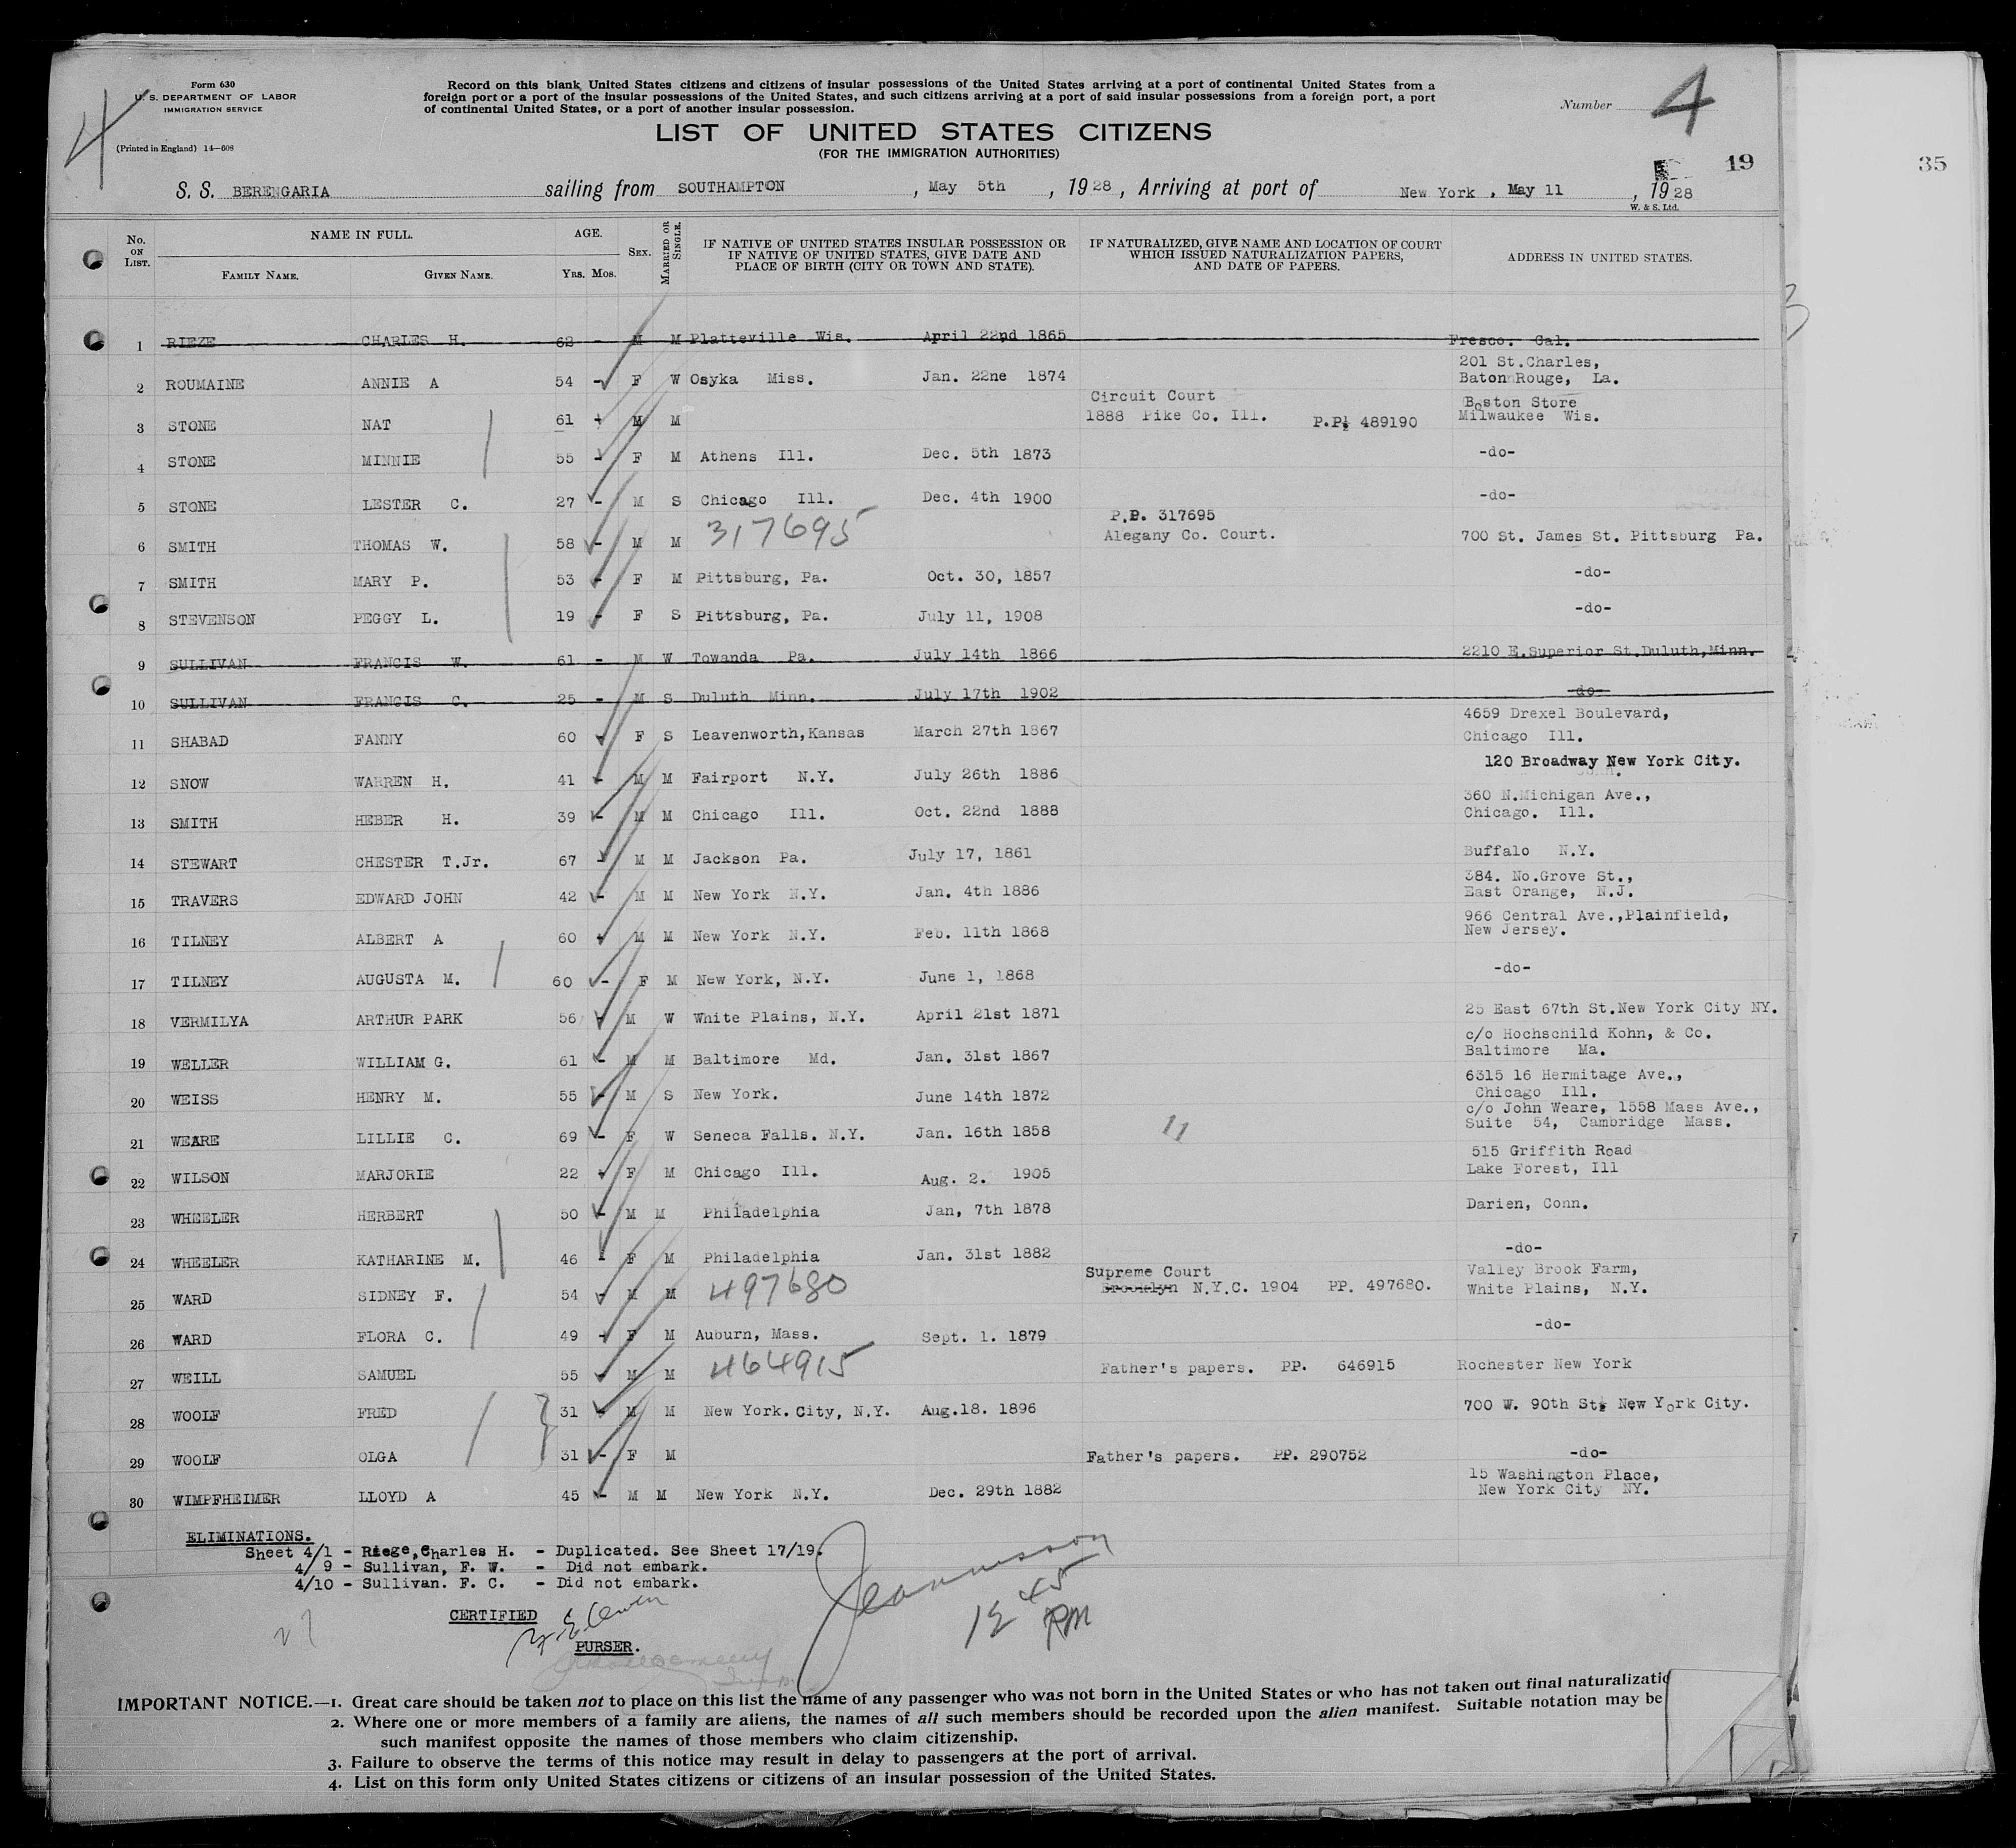 Form 630
U. S. DEPARTMENT OF LABOR
IMMIGRATION SERVICE
(Printed in England) 14—608
4
Record on this blank United States citizens and citizens of insular possessions of the United States arriving at a port of continental United States from a
foreign port or a port of the insular possessions of the United States, and such citizens arriving at a port of said insular possessions from a foreign port, a port
of continental United States, or a port of another insular possession.
LIST OF UNITED STATES CITIZENS
(FOR THE IMMIGRATION AUTHORITIES)
Number 4
19
35
S. S. BERENGARIA sailing from SOUTHAMPTON , May 5th , 1928 , Arriving at port of New York , May 11 , 1928
W. & S. Ltd.
No. ON LIST. NAME IN FULL. FAMILY NAME. GIVEN NAME. AGE. YRS. MOS. SEX. MARRIED OR SINGLE. IF NATIVE OF UNITED STATES INSULAR POSSESSION OR IF NATIVE OF UNITED STATES, GIVE DATE AND PLACE OF BIRTH (CITY OR TOWN AND STATE). IF NATURALIZED, GIVE NAME AND LOCATION OF COURT WHICH ISSUED NATURALIZATION PAPERS, AND DATE OF PAPERS. ADDRESS IN UNITED STATES.
1 RIEZE CHARLES H. 62 - M M Platteville Wis. April 22nd 1865 Fresco. Cal.
2 ROUMAINE ANNIE A 54 - F W Osyka Miss. Jan. 22ne 1874 201 St.Charles, Baton Rouge, La.
3 STONE NAT 61 - M M Circuit Court 1888 Pike Co. Ill. P.P. 489190 Boston Store Milwaukee Wis.
4 STONE MINNIE 55 - F M Athens Ill. Dec. 5th 1873 -do-
5 STONE LESTER C. 27 - M S Chicago Ill. Dec. 4th 1900 -do-
6 SMITH THOMAS W. 58 - M M 317695 P.P. 317695 Alegany Co. Court. 700 St. James St. Pittsburg Pa.
7 SMITH MARY P. 53 - F M Pittsburg, Pa. Oct. 30, 1857 -do-
8 STEVENSON PEGGY L. 19 - F S Pittsburg, Pa. July 11, 1908 -do-
9 SULLIVAN FRANCIS W. 61 - M W Towanda Pa. July 14th 1866 2210 E.Superior St.Duluth,Minn.
10 SULLIVAN FRANCIS C. 25 - M S Duluth Minn. July 17th 1902 -do-
11 SHABAD FANNY 60 - F S Leavenworth,Kansas March 27th 1867 4659 Drexel Boulevard, Chicago Ill.
12 SNOW WARREN H. 41 - M M Fairport N.Y. July 26th 1886 120 Broadway New York City.
13 SMITH HEBER H. 39 - M M Chicago Ill. Oct. 22nd 1888 360 N.Michigan Ave., Chicago. Ill.
14 STEWART CHESTER T.Jr. 67 - M M Jackson Pa. July 17, 1861 Buffalo N.Y.
15 TRAVERS EDWARD JOHN 42 - M M New York N.Y. Jan. 4th 1886 384. No.Grove St., East Orange, N.J.
16 TILNEY ALBERT A 60 - M M New York N.Y. Feb. 11th 1868 966 Central Ave.,Plainfield, New Jersey.
17 TILNEY AUGUSTA M. 60 - F M New York, N.Y. June 1, 1868 -do-
18 VERMILYA ARTHUR PARK 56 - M W White Plains, N.Y. April 21st 1871 25 East 67th St.New York City NY.
19 WELLER WILLIAM G. 61 - M M Baltimore Md. Jan. 31st 1867 c/o Hochschild Kohn, & Co. Baltimore Ma.
20 WEISS HENRY M. 55 - M S New York. June 14th 1872 6315 16 Hermitage Ave., Chicago Ill.
21 WEARE LILLIE C. 69 - F W Seneca Falls. N.Y. Jan. 16th 1858 11 c/o John Weare, 1558 Mass Ave., Suite 54, Cambridge Mass.
22 WILSON MARJORIE 22 - F M Chicago Ill. Aug. 2. 1905 515 Griffith Road Lake Forest, Ill
23 WHEELER HERBERT 50 - M M Philadelphia Jan, 7th 1878 Darien, Conn.
24 WHEELER KATHARINE M. 46 - F M Philadelphia Jan. 31st 1882 -do-
25 WARD SIDNEY F. 54 - M M 497680 Supreme Court Brooklyn N.Y.C. 1904 PP. 497680. Valley Brook Farm, White Plains, N.Y.
26 WARD FLORA C. 49 - F M Auburn, Mass. Sept. 1. 1879 -do-
27 WEILL SAMUEL 55 - M M 464915 Father's papers. PP. 646915 Rochester New York
28 WOOLF FRED 31 - M M New York.City, N.Y. Aug.18. 1896 700 W. 90th St. New York City.
29 WOOLF OLGA 31 - F M Father's papers. PP. 290752 -do-
30 WIMPFHEIMER LLOYD A 45 - M M New York N.Y. Dec. 29th 1882 15 Washington Place, New York City NY.
ELIMINATIONS.
Sheet 4/1 - Riege,Charles H. - Duplicated. See Sheet 17/19.
4/9 - Sullivan, F. W. - Did not embark.
4/10 - Sullivan. F. C. - Did not embark.
CERTIFIED
PURSER.
12 45 PM
IMPORTANT NOTICE.—1. Great care should be taken not to place on this list the name of any passenger who was not born in the United States or who has not taken out final naturalizatio
2. Where one or more members of a family are aliens, the names of all such members should be recorded upon the alien manifest. Suitable notation may be
such manifest opposite the names of those members who claim citizenship.
3. Failure to observe the terms of this notice may result in delay to passengers at the port of arrival.
4. List on this form only United States citizens or citizens of an insular possession of the United States.